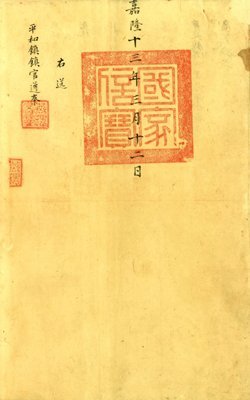 嘉隆十三年三月十二日
國家信寶
右送
平和鎮鎮官遵奉